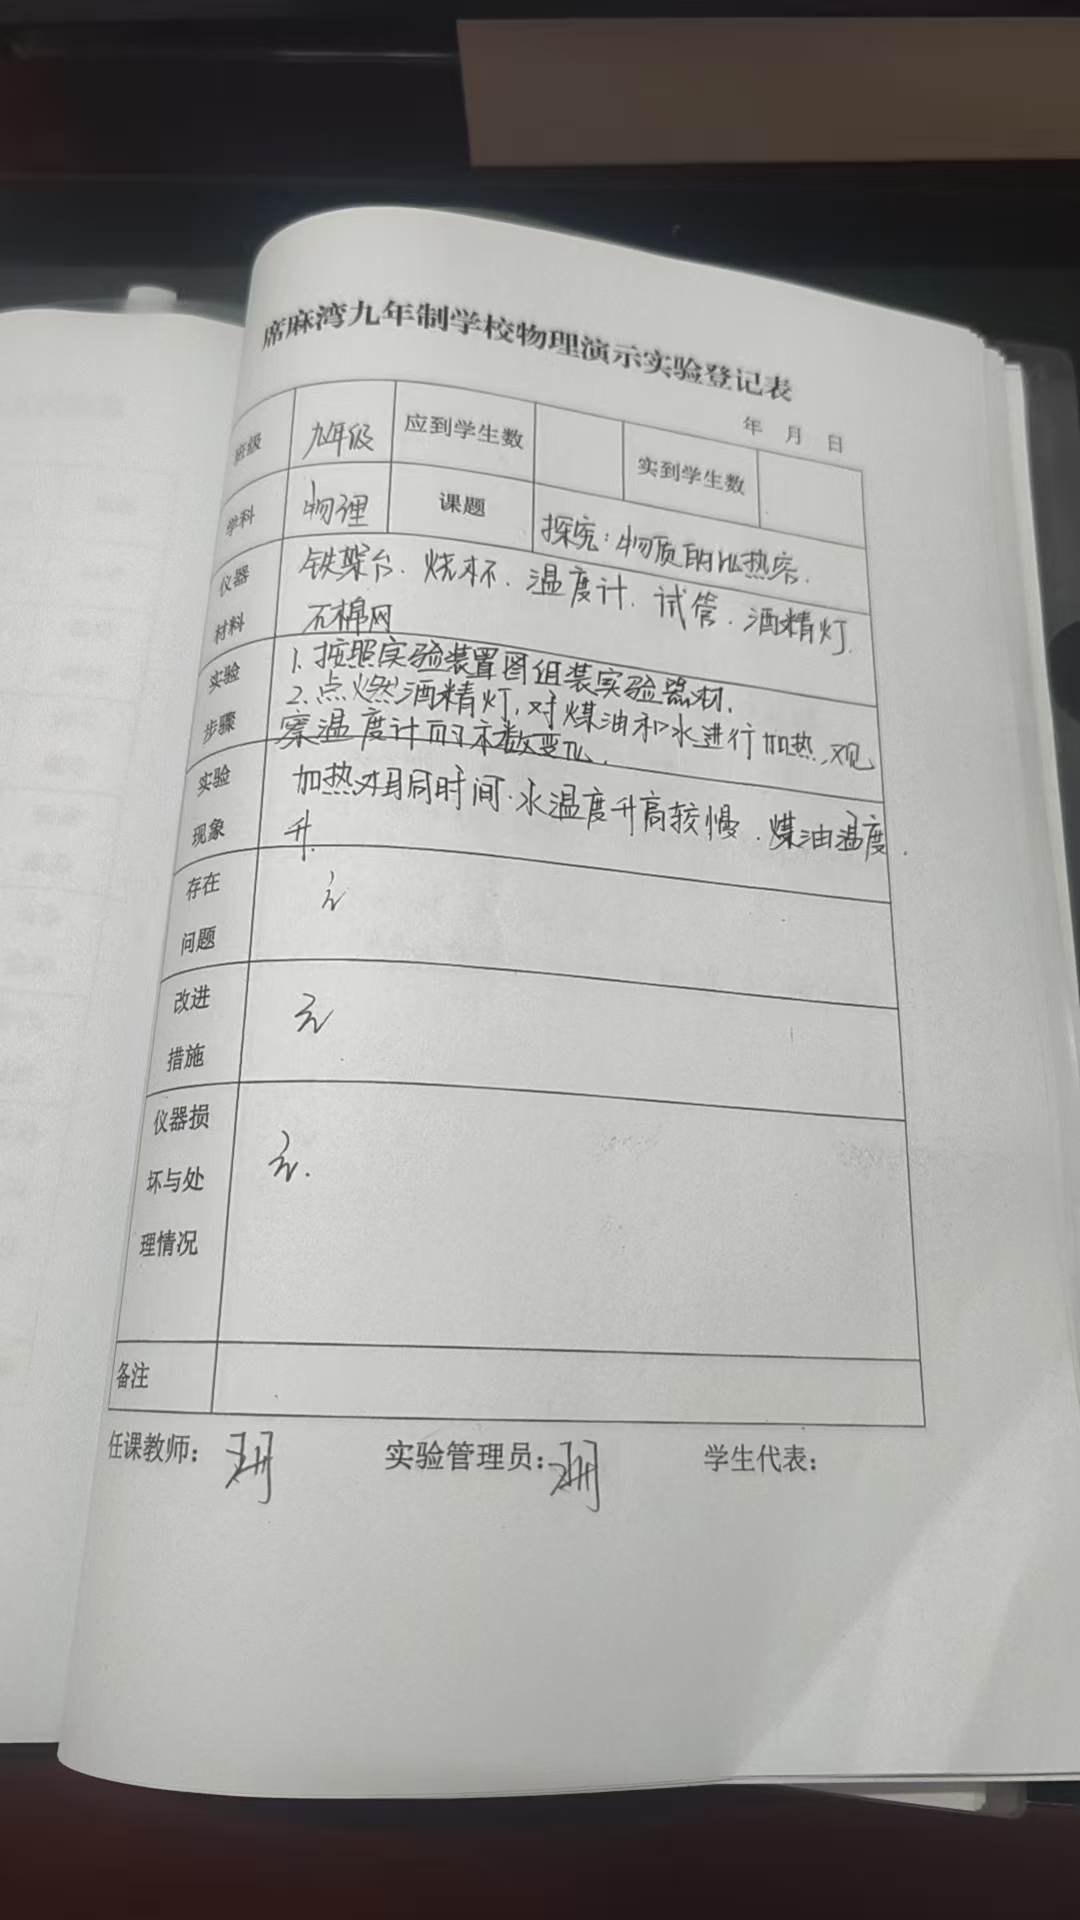 席麻湾九年制学校物理演示实验登记表
年 月 日
班级 九年级 应到学生数 实到学生数
学科 物理 课题 探究：物质的比热容.
仪器材料 铁架台. 烧杯. 温度计. 试管. 酒精灯.
石棉网
实验步骤 1. 按照实验装置图组装实验器材.
2. 点燃酒精灯, 对煤油和水进行加热, 观
察温度计的示数变化.
实验现象 加热相同时间. 水温度升高较慢. 煤油温度
升.
存在问题 无
改进措施 无
仪器损坏与处理情况 无.
备注
任课教师： 实验管理员： 学生代表：